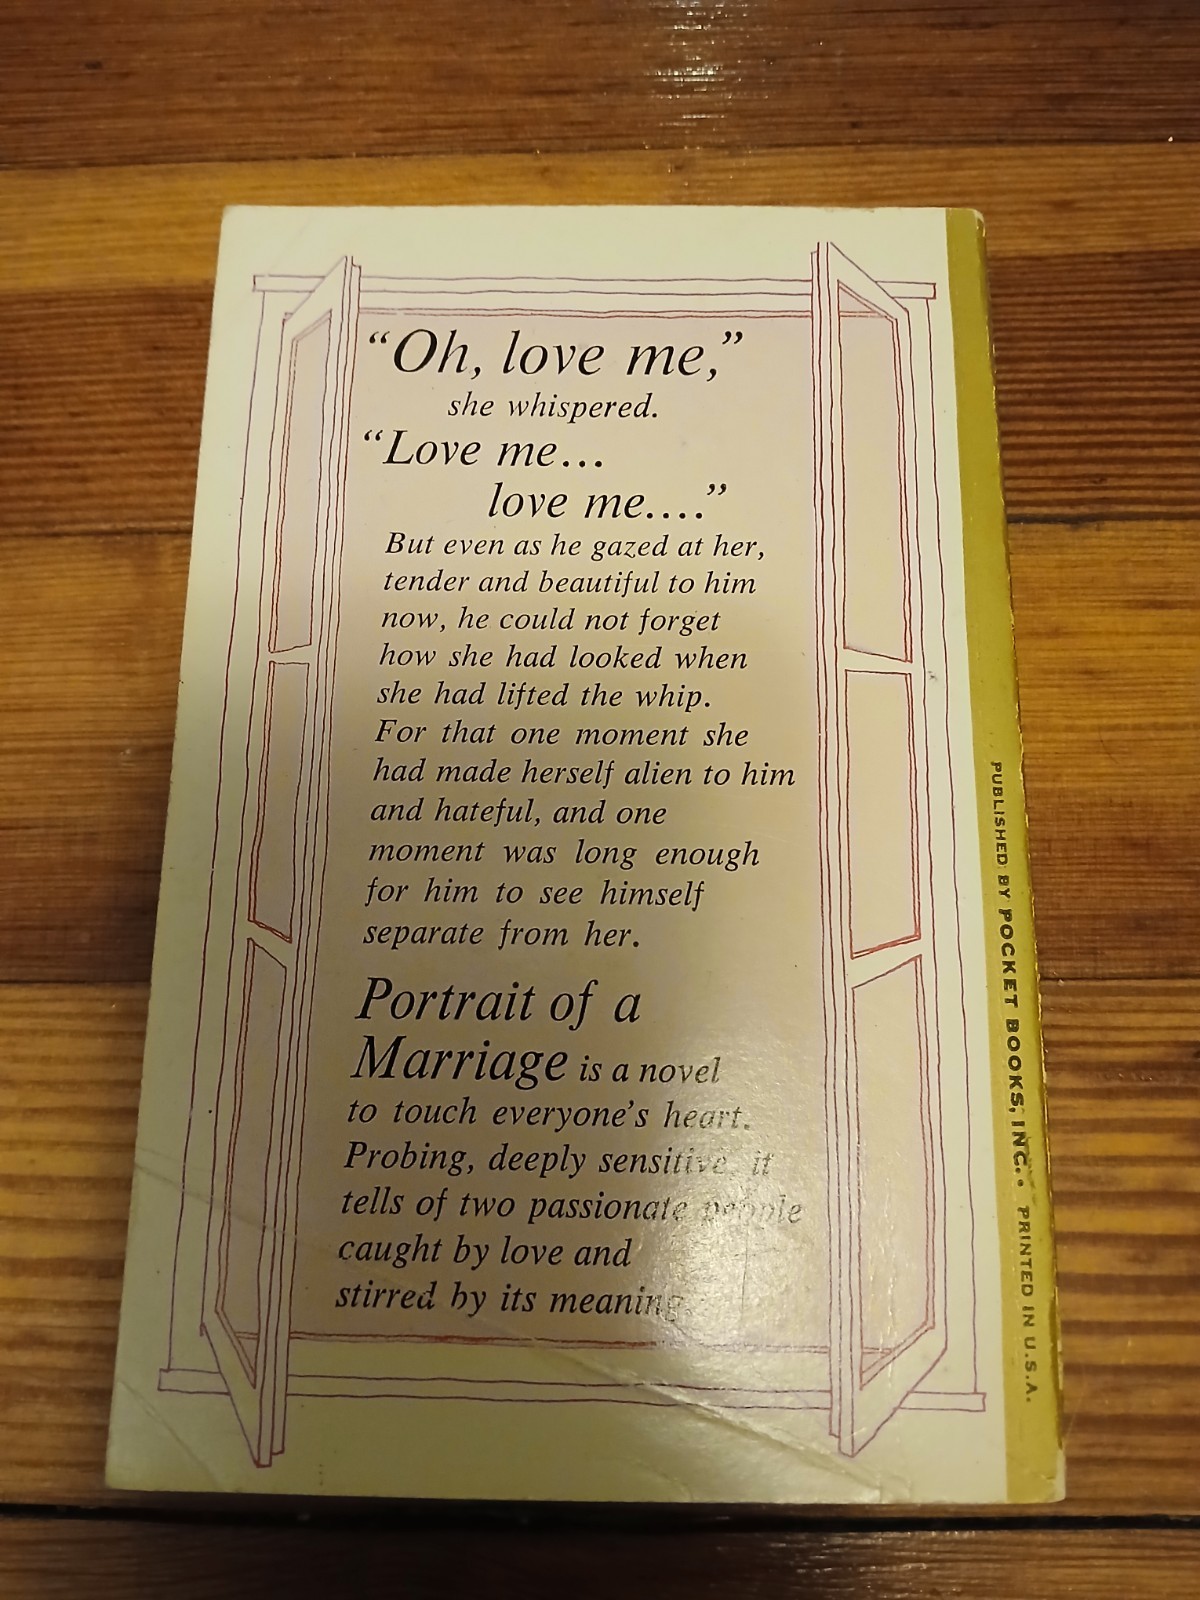 “Oh, love me,”
she whispered.
“Love me...
love me....”
But even as he gazed at her,
tender and beautiful to him
now, he could not forget
how she had looked when
she had lifted the whip.
For that one moment she
had made herself alien to him
and hateful, and one
moment was long enough
for him to see himself
separate from her.
Portrait of a
Marriage is a novel
to touch everyone’s heart.
Probing, deeply sensitive, it
tells of two passionate people
caught by love and
stirred by its meaning.
PUBLISHED BY POCKET BOOKS, INC. • PRINTED IN U.S.A.